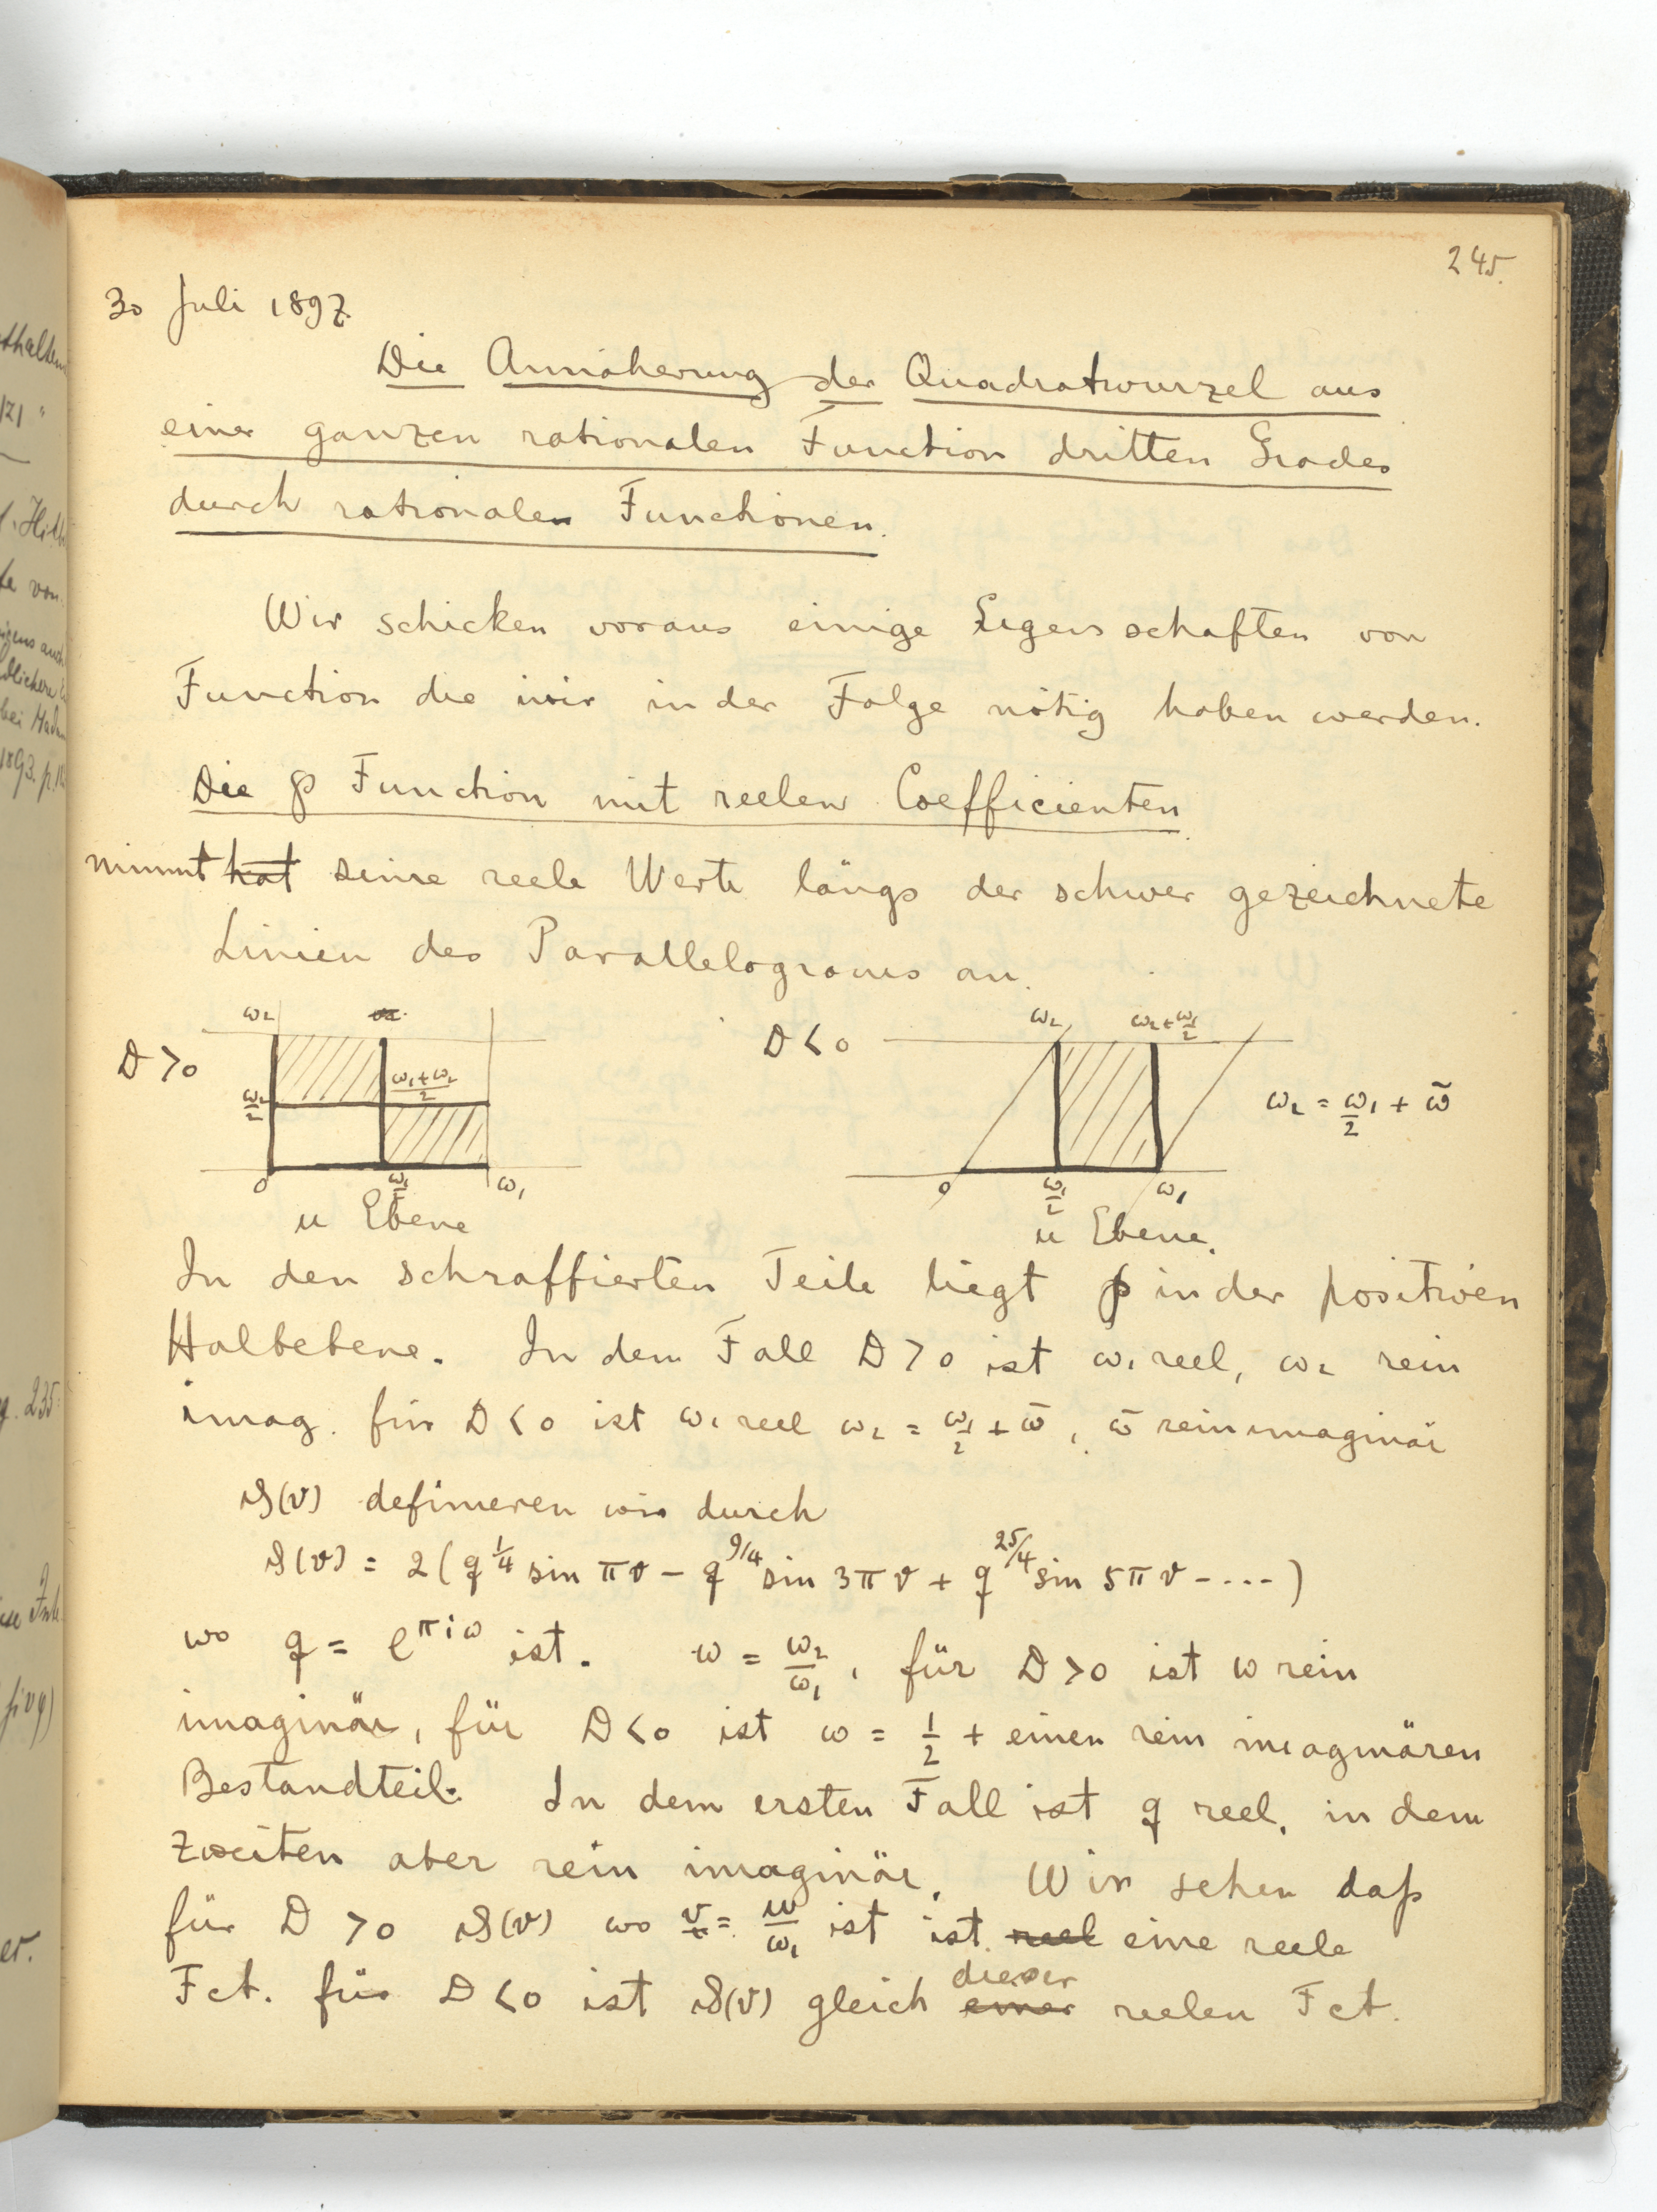 245.
30 Juli 1897.
Die Annäherung der Quadratwurzel aus
einer ganzen rationalen Function dritten Grades
durch rationalen Functionen.
Wir schicken voraus einige Eigenschaften von
Function die wir in der Folge nötig haben werden.
Die ℘ Function mit reelen Coefficienten
nimmt hat seine reele Werte längs der schwer gezeichnete
Linien des Parallelograms an.
D > 0
ω₂
ω₂/2
(ω₁+ω₂)/2
0
ω₁/2
ω₁
u Ebene
D < 0
ω₂
ω₂+ω₁/2
0
ω₁/2
ω₁
u Ebene.
ω₂ = ω₁/2 + ω̄
In den schraffierten Teile liegt ℘ in der positiven
Halbebene. In dem Fall D > 0 ist ω₁ reel, ω₂ rein
imag. für D < 0 ist ω₁ reel ω₂ = ω₁/2 + ω̄, ω̄ rein imaginär
ϑ(v) definieren wir durch
ϑ(v) = 2(q^1/4 sin πv − q^9/4 sin 3πv + q^25/4 sin 5πv − ....)
wo q = e^πiω ist. ω = ω₂/ω₁, für D > 0 ist ω rein
imaginär, für D < 0 ist ω = 1/2 + einen rein imaginären
Bestandteil. In dem ersten Fall ist q reel, in dem
zweiten aber rein imaginär. Wir sehen daß
für D > 0 ϑ(v) wo v = u/ω₁ ist ist reel eine reele
Fct. für D < 0 ist ϑ(v) gleich einer dieser reelen Fct.